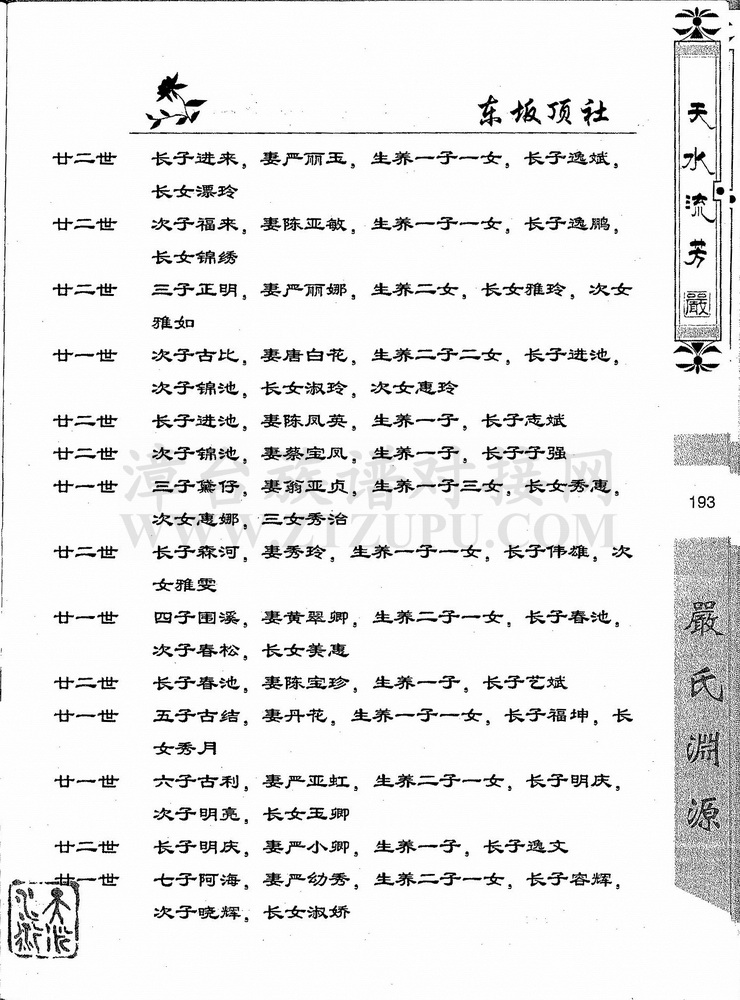 东坂顶社
廿二世 长子进来，妻严丽玉，生养一子一女，长子逸斌，
长女漂玲
廿二世 次子福来，妻陈亚敏，生养一子一女，长子逸鹏，
长女锦绣
廿二世 三子正明，妻严丽娜，生养二女，长女雅玲，次女
雅如
廿一世 次子古比，妻唐白花，生养二子二女，长子进池，
次子锦池，长女淑玲，次女惠玲
廿二世 长子进池，妻陈凤英，生养一子，长子志斌
廿二世 次子锦池，妻蔡宝凤，生养一子，长子子强
廿一世 三子黛仔，妻翁亚贞，生养一子三女，长女秀惠，
次女惠娜，三女秀治
廿二世 长子森河，妻秀玲，生养一子一女，长子伟雄，次
女雅雯
廿一世 四子围溪，妻黄翠卿，生养二子一女，长子春池，
次子春松，长女美惠
廿二世 长子春池，妻陈宝珍，生养一子，长子艺斌
廿一世 五子古结，妻丹花，生养一子一女，长子福坤，长
女秀月
廿一世 六子古利，妻严亚虹，生养二子一女，长子明庆，
次子明亮，长女玉卿
廿二世 长子明庆，妻严小卿，生养一子，长子逸文
廿一世 七子阿海，妻严幼秀，生养二子一女，长子容辉，
次子晓辉，长女淑娇
天水流芳
嚴
193
嚴氏淵源
漳台族谱对接网
WWW.ZTZUPU.COM